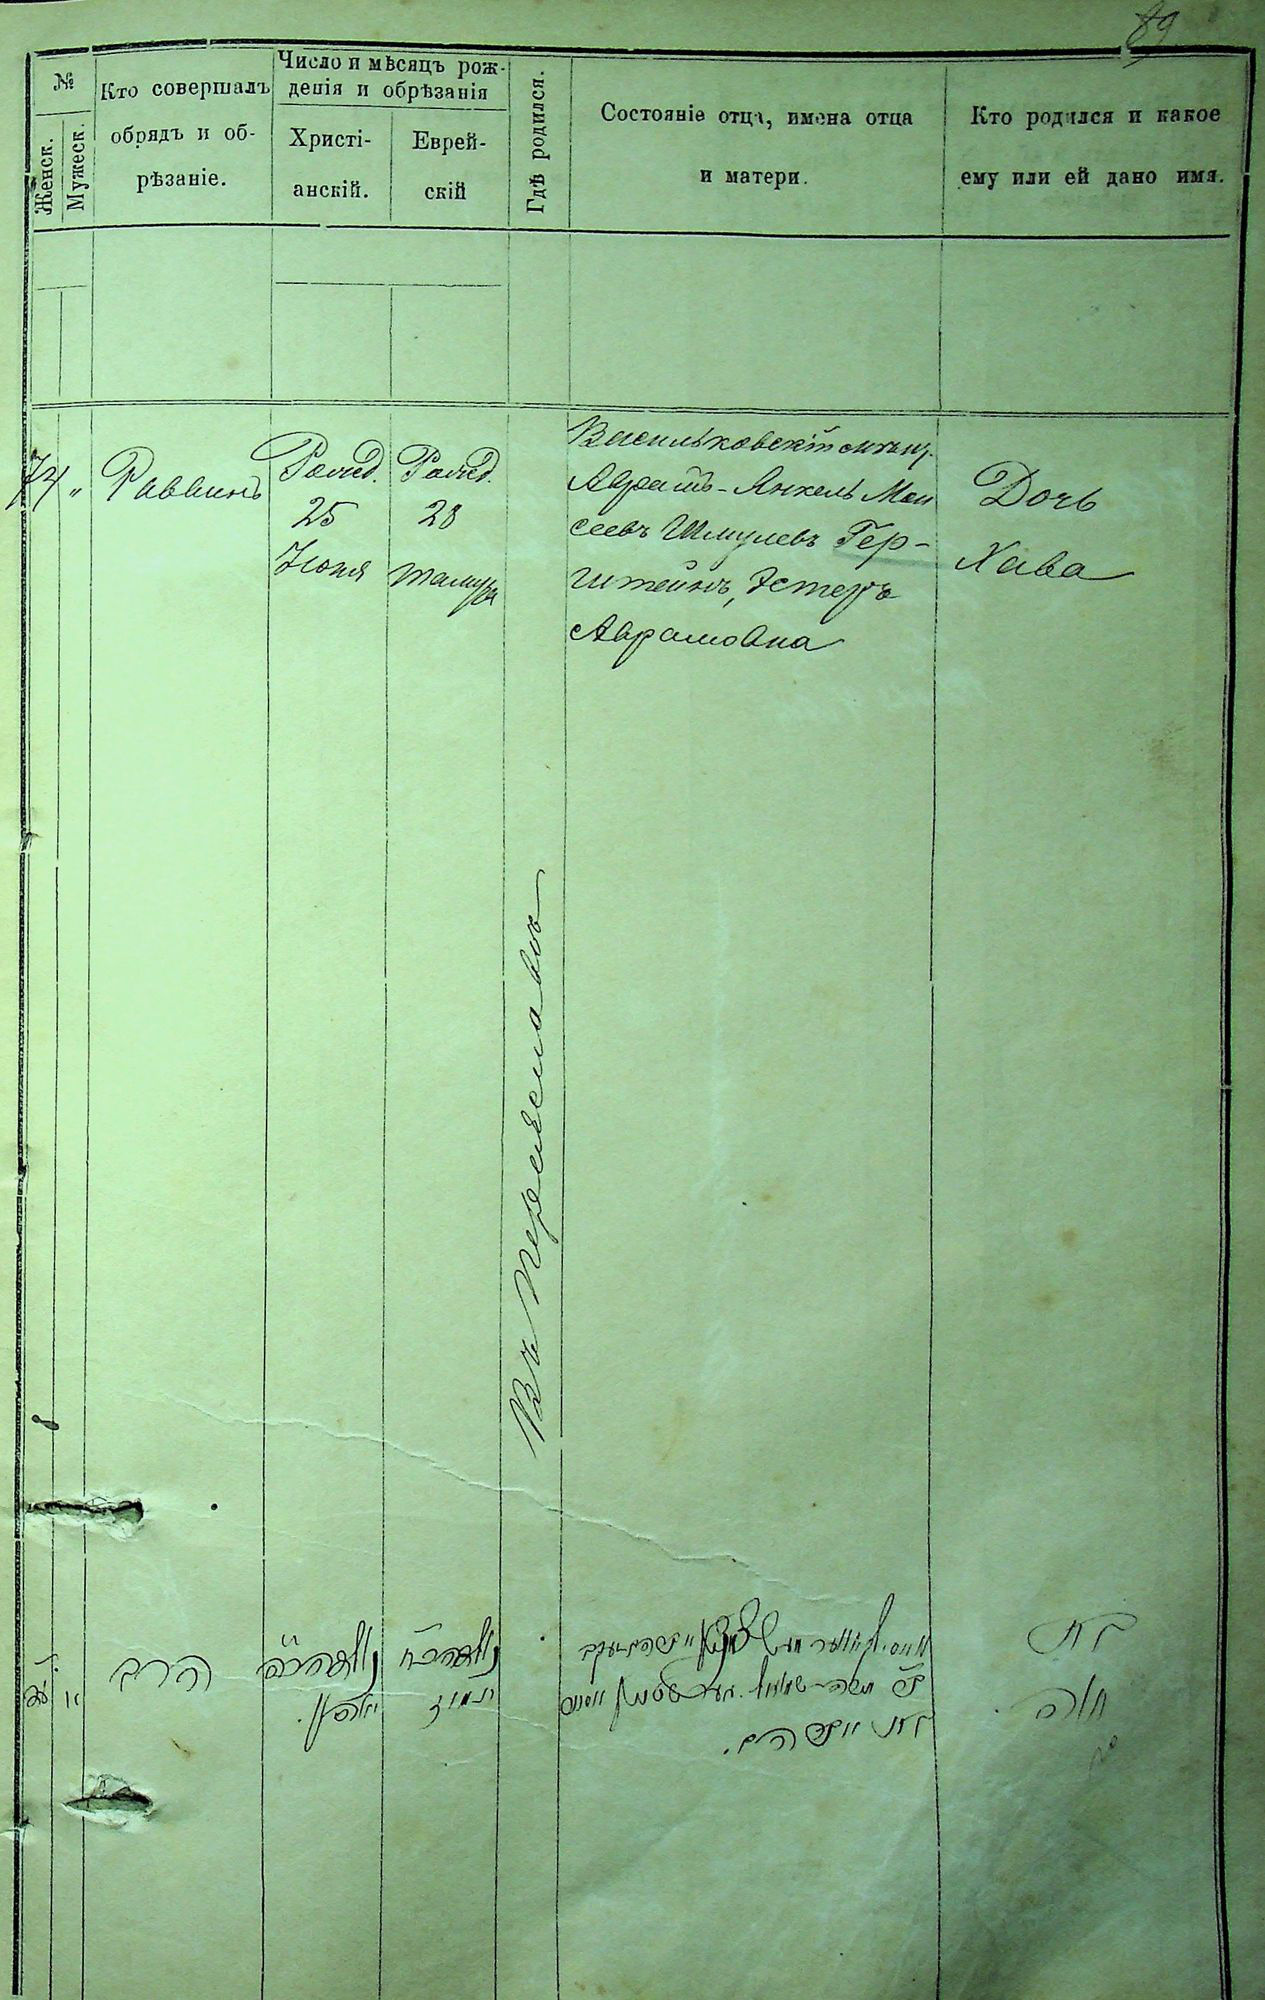 89
№
Женск.
Мужеск.
Кто совершалъ
обрядъ и об-
рѣзаніе.
Число и мѣсяцъ рож-
денія и обрѣзанія
Христі-
анскій.
Еврей-
скій
Гдѣ родился.
Состояніе отца, имена отца
и матери.
Кто родился и какое
ему или ей дано имя.
74 "
Раввинъ
Рожд.
25
Юня
Рожд.
28
тамуза
Въ Переяславѣ
Васильковскій мѣщ.
Аврамъ-Янкель Мои
сеевъ Шмулевъ Гер-
штейнъ, Эстеръ
Аврамовна
Дочь
Хава
הרב
תמוז
בת אברהם.
בת
חוה